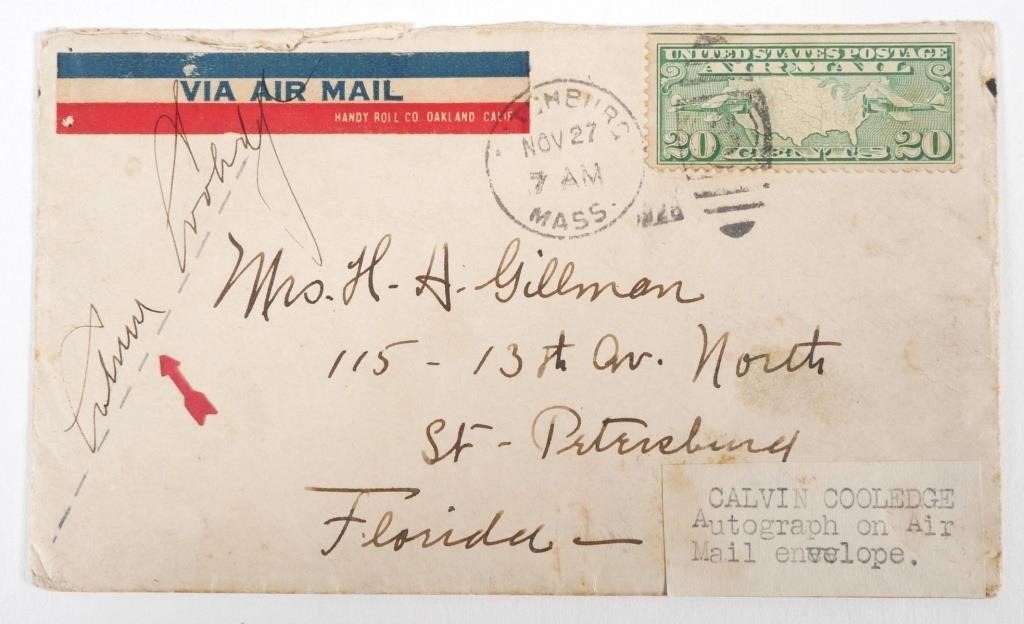 VIA AIR MAIL
HANDY ROLL CO. OAKLAND CALIF.
NOV 27
7 AM
MASS.
UNITED STATES POSTAGE
AIR MAIL
20 CENTS 20
Calvin Coolidge
Mrs. H. A. Gillman
115 - 13th Av. North
St - Petersburg
Florida —
CALVIN COOLEDGE
Autograph on Air
Mail envelope.